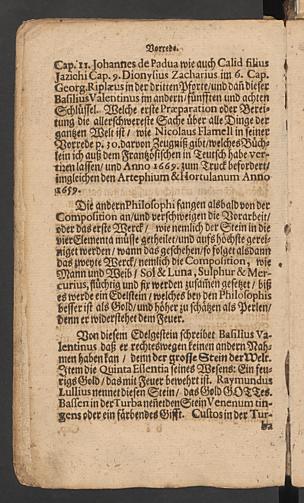 Vorrede.
Cap. 11. Johannes de Padua wie auch Calid filius
Jazichi Cap. 9. Dionysius Zacharius im 6. Cap.
Georg. Riplæus in der dritten Pforte/und dañ dieser
Basilius Valentinus im andern/fünfften und achten
Schlüssel. Welche erste Præparation oder Berei-
tung die allerschwereste Sache über alle Dinge der
gantzen Welt ist/ wie Nicolaus Flamell in seiner
Vorrede p. 30. darvon Zeugniß gibt/welches Büch-
lein ich auß dem Frantzösischen in Teutsch habe ver-
tiren lassen/ und Anno 1669. zum Truck befordert/
imgleichen den Artephium & Hortulanum Anno
1659.
Die andern Philosophi fangen alsbald von der
Composition an/und verschweigen die Vorarbeit/
oder das erste Werck/ wie nemlich der Stein in die
vier Elementa müste getheilet/und aufs höchste gerei-
niget werden/ wann das geschehen/so folget alsdann
das zweyte Werck/ nemlich die Composition, wie
Mann und Weib/ Sol & Luna, Sulphur & Mer-
curius, flüchtig und fix werden zusam̃en gesetzt/ biß
es werde ein Edelstein/ welches bey den Philosophis
besser ist als Gold/und höher zu schätzen als Perlen/
denn er widerstehet dem Feuer.
Von diesem Edelgestein schreibet Basilius Va-
lentinus daß er rechtswegen keinen andern Nah-
men haben kan/ denn der grosse Stein der Welt.
Item die Quinta Essentia seines Wesens: Ein feu-
rigs Gold/das mit Feuer bewehrt ist. Raymundus
Lullius nennet diesen Stein/ das Gold GOTTes.
Bassen in der Turba neñet den Stein Venenum tin-
gens oder ein färbendes Gifft. Custos in der Tur-
ba